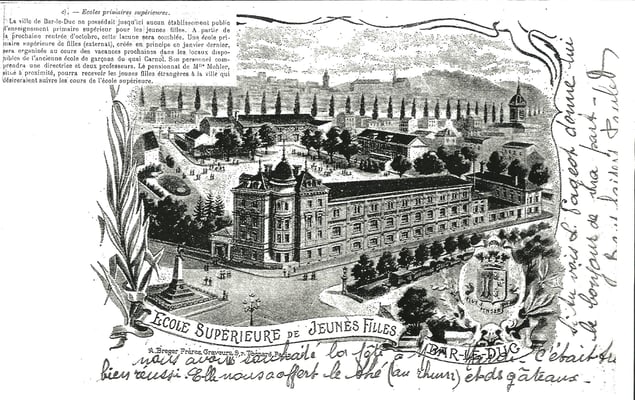 c). — Ecoles primaires supérieures.
La ville de Bar-le-Duc ne possédait jusqu'ici aucun établissement public
d'enseignement primaire supérieur pour les jeunes filles. A partir de
la prochaine rentrée d'octobre, cette lacune sera comblée. Une école pri-
maire supérieure de filles (externat), créée en principe en janvier dernier,
sera organisée au cours des vacances prochaines dans les locaux dispo-
nibles de l'ancienne école de garçons du quai Carnot. Son personnel com-
prendra une directrice et deux professeurs. Le pensionnat de Mlle Mohler,
situé à proximité, pourra recevoir les jeunes filles étrangères à la ville qui
désireraient suivre les cours de l'école supérieure.
ECOLE SUPÉRIEURE DE JEUNES FILLES
BAR-LE-DUC
A. Breger Frères, Graveurs, 9, r. Thénard, Paris
nous avons souhaité la fête à C'était
bien réussi. Elle nous a offert le thé (au rhum) et des gâteaux.
Si tu vois S. Pageot donne lui
le bonjour de ma part —